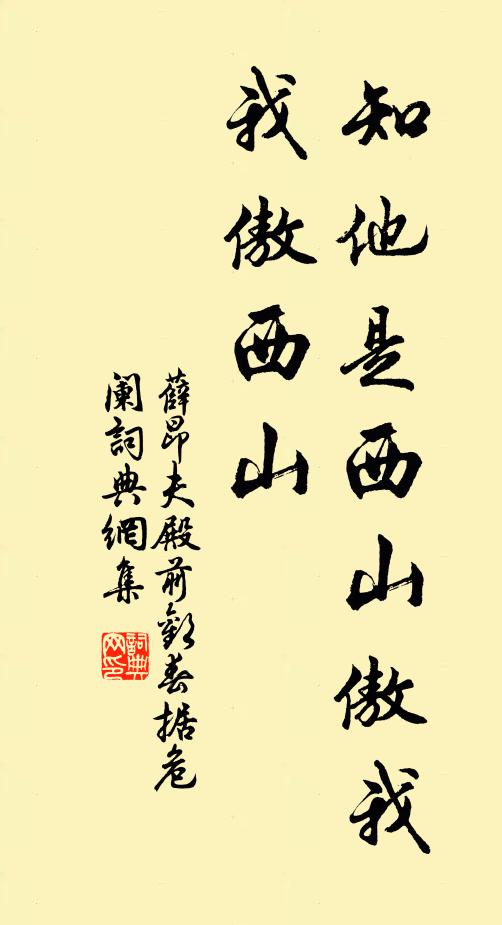 知他是西山傲我
我傲西山
薛昂夫殿前歡春据危
闌詞典網集
詞典
网印